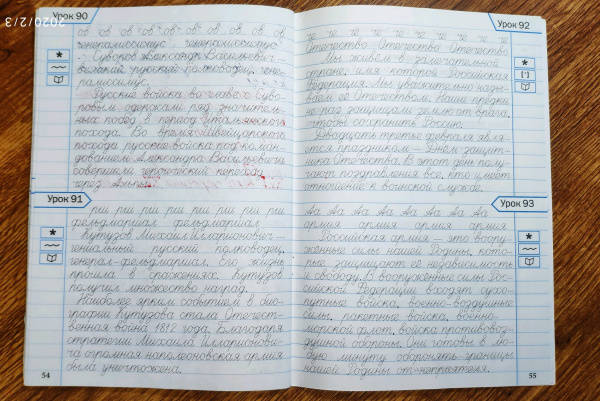 2020/2/3
Урок 90
ов ов ов ов ов ов ов ов ов
генералиссимус генералиссимус
Суворов Александр Васильевич –
великий русский полководец, гене-
ралиссимус.
Русские войска во главе с Суво-
ровым одержали ряд значитель-
ных побед в период Итальянского
похода. Во время Швейцарского
похода русские войска под коман-
дованием Александра Васильевича
совершили героический переход
через Альпы.
Урок 91
ри ри ри ри ри ри ри ри
фельдмаршал фельдмаршал
Кутузов Михаил Илларионович –
гениальный русский полководец,
генерал-фельдмаршал. Его жизнь
прошла в сражениях. Кутузов
получил множество наград.
Наиболее ярким событием в био-
графии Кутузова стала Отечест-
венная война 1812 года. Благодаря
стратегии Михаила Илларионови-
ча огромная наполеоновская армия
была уничтожена.
54
Урок 92
те те те те те те те те те
Отечество Отечество Отечество
Мы живём в замечательной
стране, имя которой Российская
Федерация. Мы уважительно назы-
ваем её Отечеством. Наши предки
не раз защищали землю от врага,
чтобы сохранить Россию.
Двадцать третье февраля явля-
ется праздником – Днём защит-
ника Отечества. В этот день полу-
чают поздравления все, кто имеет
отношение к воинской службе.
Урок 93
Аа Аа Аа Аа Аа Аа Аа
армия армия армия армия
Российская армия – это воору-
жённые силы нашей Родины, кото-
рые защищают её независимость
и свободу. В вооружённые силы Рос-
сийской Федерации входят сухо-
путные войска, военно-воздушные
силы, ракетные войска, военно-
морской флот, войска противовоз-
душной обороны. Они готовы в лю-
бую минуту оборонять границы
нашей Родины от неприятеля.
55